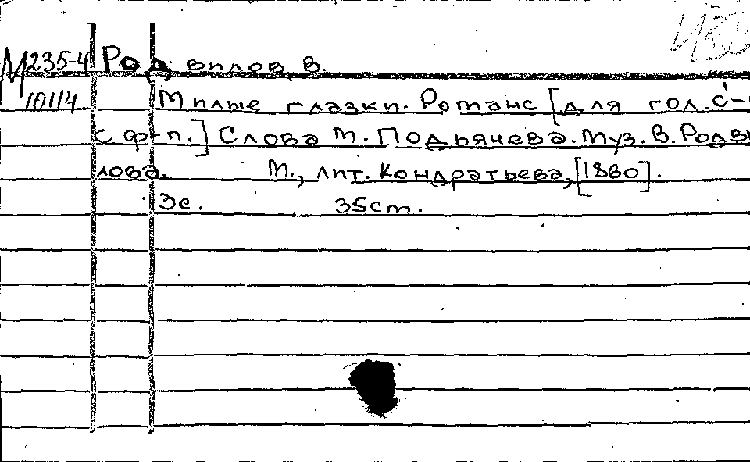 М 235-4 Родвилов, В.
10114 Милые глазки. Романс [для гол. с
с ф-п.] Слова М. Подьячева. Муз. В. Родви
лова. М., лит. Кондратьева, [1880].
3с. 35см.